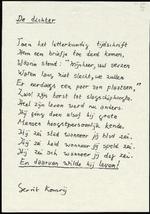 De dichter
Toen het letterkundig tijdschrift
Hem een briefje tot dank
Waarin stond: "Mijnheer, uw verzen
Waren lang niet slecht, we zullen
Er eerdaags een paar van plaatsen,"
Zwol zijn borst tot
Heel zijn leven werd nu anders.
Hij ging door alsof hij grote
Mensen hoogstpersoonlijk kende.
Hij zei stad wanneer hij
Hij zei held wanneer hij speld zei.
Hij zei ach wanneer hij dag zei.
En daarvan wilde hij leven!
Gerrit Komrij